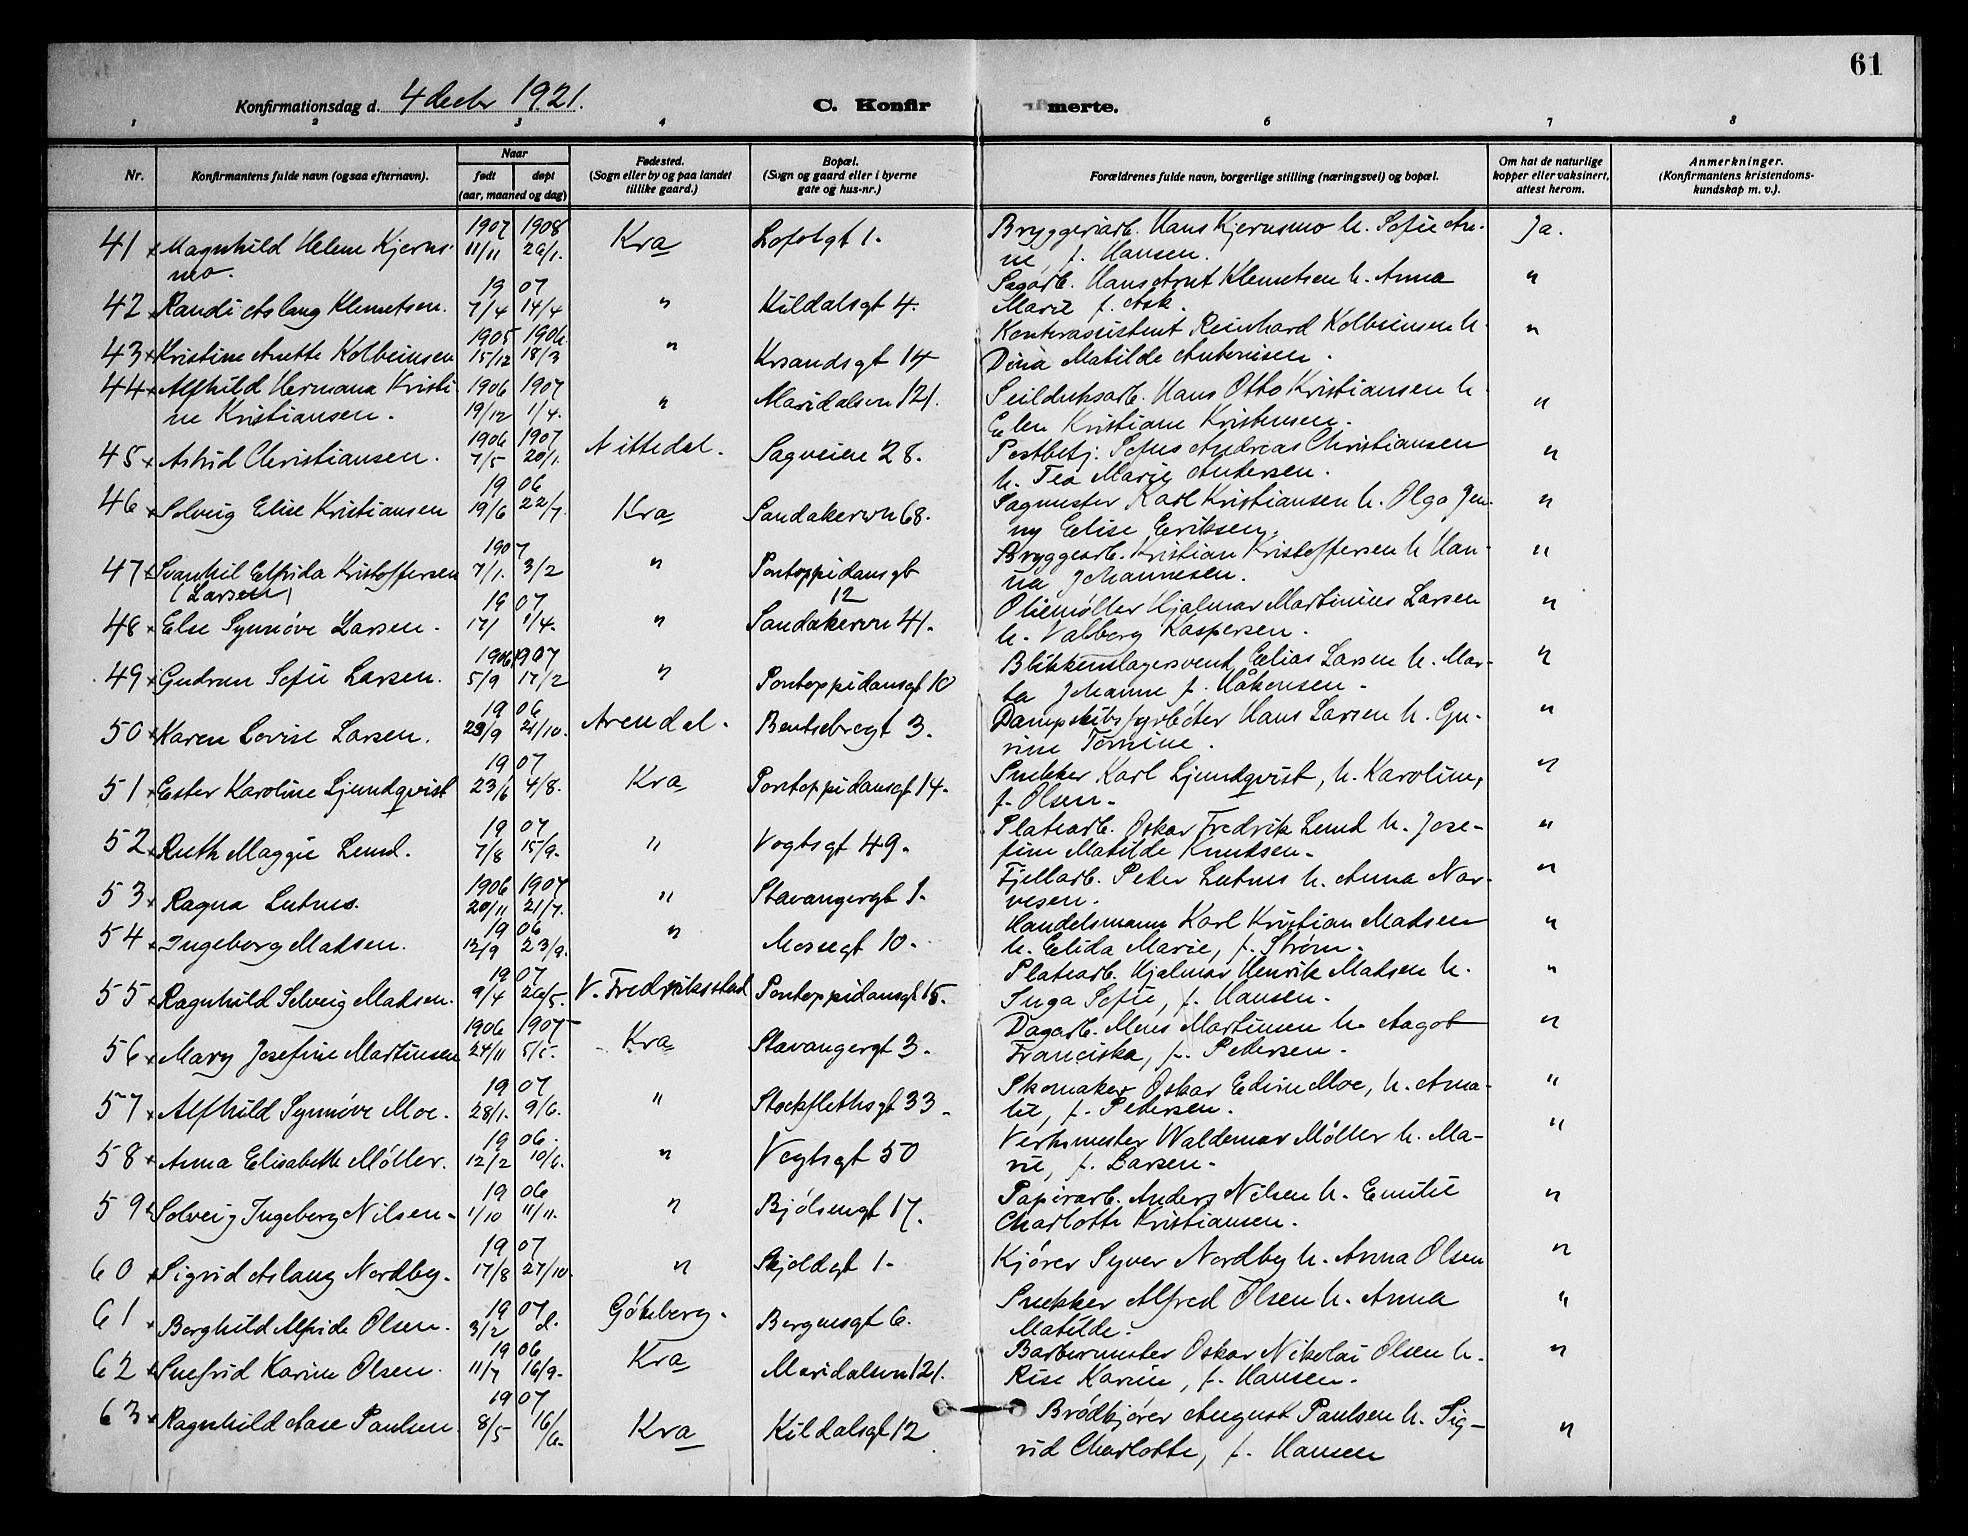 61
Konfirmationsdag d. 4 decbr 1921.
C. Konfirmerte.
1 2 3 4 5 6 7 8
Nr. | Konfirmantens fulde navn (ogsaa efternavn). | Naar født døpt (aar, maaned og dag) | Fødested. (Sogn eller by og paa landet tillike gaard.) | Bopæl. (Sogn og gaard eller i byerne gate og hus-nr.) | Forældrenes fulde navn, borgerlige stilling (næringsvei) og bopæl. | Om hat de naturlige kopper eller vaksinert, attest herom. | Anmerkninger. (Konfirmantens kristendomskundskap m. v.).
41 Magnhild Helene Kjernsmo. 1907 11/11 1908 26/1. Kra Lofotgt 1. Bryggeriarb. Hans Kjernsmo h. Sofie Anne, f. Hansen. Ja.
42 Randi Aslaug Klemetsen. 1907 7/4 14/4 " Kildalsgt 4. Sagarb. Hans Arnt Klemetsen h. Anna Marie f. Ask. "
43 Kristine Anette Kolbeinsen 1905 15/12 1906 18/3 " Krsandsgt 14 Kontorassistent Reinhard Kolbeinsen h. Dina Matilde Antonisen. "
44 Alfhild Hermana Kristine Kristiansen. 1906 19/12 1907 1/4. " Maridalsvn 121. Seildugsarb. Hans Otto Kristiansen h. Elen Kristiane Kristensen. "
45 Astrid Christiansen. 1906 7/5 1907 20/1. Nittedal. Sagveien 28. Postbetj. Sofus Andreas Christiansen h. Tea Marie Andersen. "
46 Solveig Elise Kristiansen 1906 19/6 22/7. Kra Sandakervn 68. Sagmester Karl Kristiansen h. Olga Jenny Elise Eriksen. "
47 Svanhil Elfrida Kristoffersen (Larsen) 1907 7/1. 3/2 " Pontoppidansgt 12 Bryggearb. Kristian Kristoffersen h Hanna Johannesen. "
48 Else Synnøve Larsen. 1907 17/1 1/4. " Sandakervn 41. Oliemøller Hjalmar Martinius Larsen h. Valborg Kaspersen. "
49 Gudrun Sofie Larsen. 1906 5/9 1907 17/2 " Pontoppidansgt 10 Blikkenslagersvend Elias Larsen h. Marta Johanne f. Håkensen. "
50 Karen Lovise Larsen. 1906 23/9 21/10. Arendal. Bentsebrogt 3. Dampskibsfyrbøter Hans Larsen h. Gurine Tomine. "
51 Ester Karoline Ljundqvist 1907 23/6 4/8. Kra Pontoppidansgt 14. Snekker Karl Ljundqvist, h. Karoline, f. Olsen. "
52 Ruth Maggie Lund. 1907 7/8 15/9. " Vogtsgt 49. Platearb. Oskar Fredrik Lund h. Josefine Matilde Knudsen. "
53 Ragna Lutnes. 1906 20/11 1907 21/7. " Stavangergt 1. Fjellarb. Peter Lutnes h. Anna Narvesen. "
54 Ingeborg Madsen. 1906 12/9 23/9. " Mossegt 10. Handelsmann Karl Kristian Madsen h. Elida Marie, f. Strøm. "
55 Ragnhild Solveig Madsen. 1907 9/4 26/5. V. Fredriksstad Pontoppidansgt 15. Platearb. Hjalmar Henrik Madsen h. Inga Sofie, f. Hansen. "
56 Mary Josefine Martinsen 1906 24/11 1907 5/5. Kra Stavangergt 3. Dagarb. Mons Martinsen h. Aagot Franciska, f. Pedersen. "
57 Alfhild Synnøve Moe. 1907 28/1. 9/6. " Stockflethsgt 33. Skomaker Oskar Edvin Moe, h. Amalie, f. Pedersen. "
58 Anna Elisabeth Møller. 1906. 12/2 10/6. " Vogtsgt 50 Verksmester Waldemar Møller h. Marie, f. Larsen. "
59 Solveig Ingeborg Nilsen. 1906 1/10 11/11. " Bjølsengt 17. Papirarb. Anders Nilsen h. Emilie Charlotte Kristiansen. "
60 Sigrid Aslaug Nordby. 1907 17/8 27/10. " Skjoldgt 1. Kjører Syver Nordby h. Anna Olsen "
61 Borghild Alfride Olsen. 1907 3/2 d. Göteborg. Bergensgt 6. Snekker Alfred Olsen h. Anna Matilde. "
62 Snefrid Karin Olsen. 1906 11/7 16/9. Kra Maridalsvn 121. Barbermester Oskar Nikolai Olsen h. Rise Karine, f. Hansen. "
63 Ragnhild Aase Paulsen. 1907 8/5 16/6. Kra Kildalsgt 12 Brødkjører August Paulsen h. Sigrid Charlotte, f. Hansen "